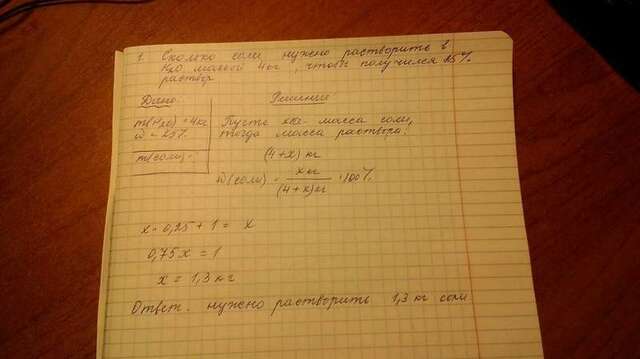 1. Сколько соли нужно растворить в
H₂O массой 4 кг, чтобы получился 25%
раствор
Дано:
m(H₂O) = 4 кг
ω = 25%
m(соли) -
Решение
Пусть x кг масса соли,
тогда масса раствора:
(4+x) кг
ω(соли) = x кг / (4+x) кг · 100%
x · 0,25 + 1 = x
0,75x = 1
x = 1,3 кг
Ответ. нужно растворить 1,3 кг соли